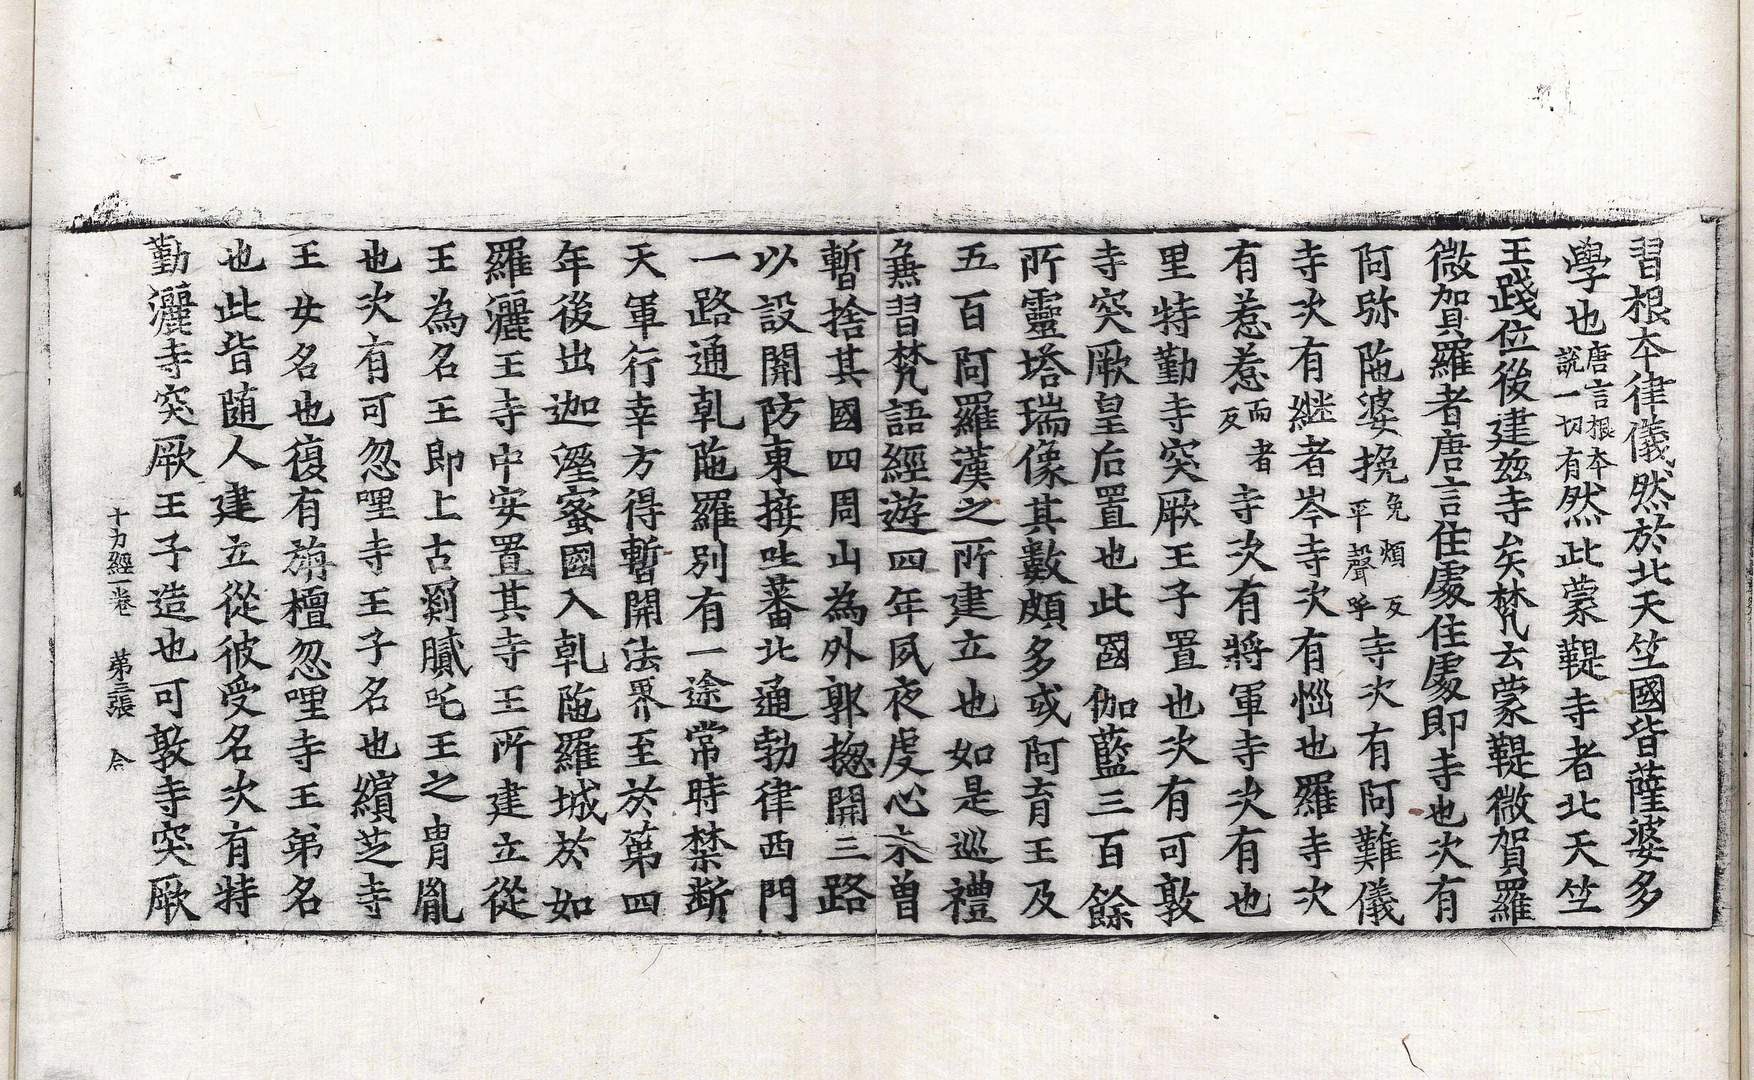 習根夲律儀然於北天竺國皆薩婆多
學也唐言根夲說一切有然此蒙鞮寺者北天竺
王踐位後建玆寺矣梵云蒙鞮微賀羅
微賀羅者唐言住處住處即寺也次有
阿弥陁婆挽免煩反平聲呼寺次有阿難儀
寺次有継者岑寺次有惱也羅寺次
有惹惹而者反寺次有將軍寺次有也
里特勤寺突厥王子置也次有可敦
寺突厥皇后置也此國伽藍三百餘
所靈塔瑞像其數頗多或阿育王及
五百阿羅漢之所建立也如是巡禮
兼習梵語經遊四年夙夜虔心未曾
暫捨其國四周山為外郭捴開三路
以設開防東接吐蕃北通勃律西門
一路通乹陁羅別有一途常時禁断
天軍行幸方得暫開法界至於第四
年後出迦溼蜜國入乹陁羅城於如
羅灑王寺中安置其寺王所建立從
王為名王即上古罽膩吒王之胄胤
也次有可忽哩寺王子名也繽芝寺
王女名也復有旃檀忽哩寺王弟名
也此皆随人建立從彼受名次有特
勤灑寺突厥王子造也可敦寺突厥
十力經一卷　第三張　合